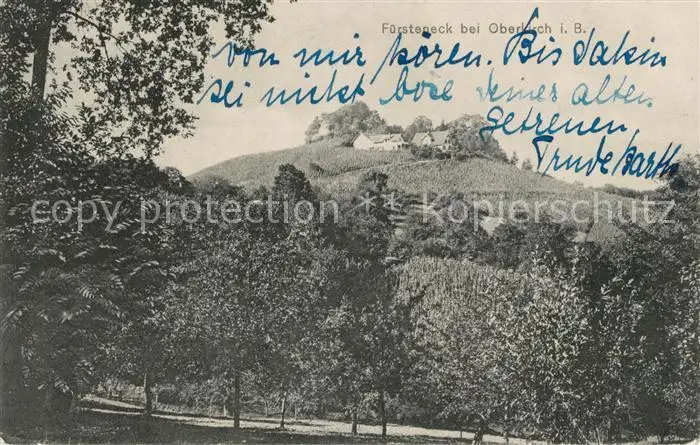 Fürsteneck bei Oberkirch i. B.
von mir hören. Bis dahin
sei nicht böse deiner alten
getreuen
Trude Barth
copy protection * Kopierschutz